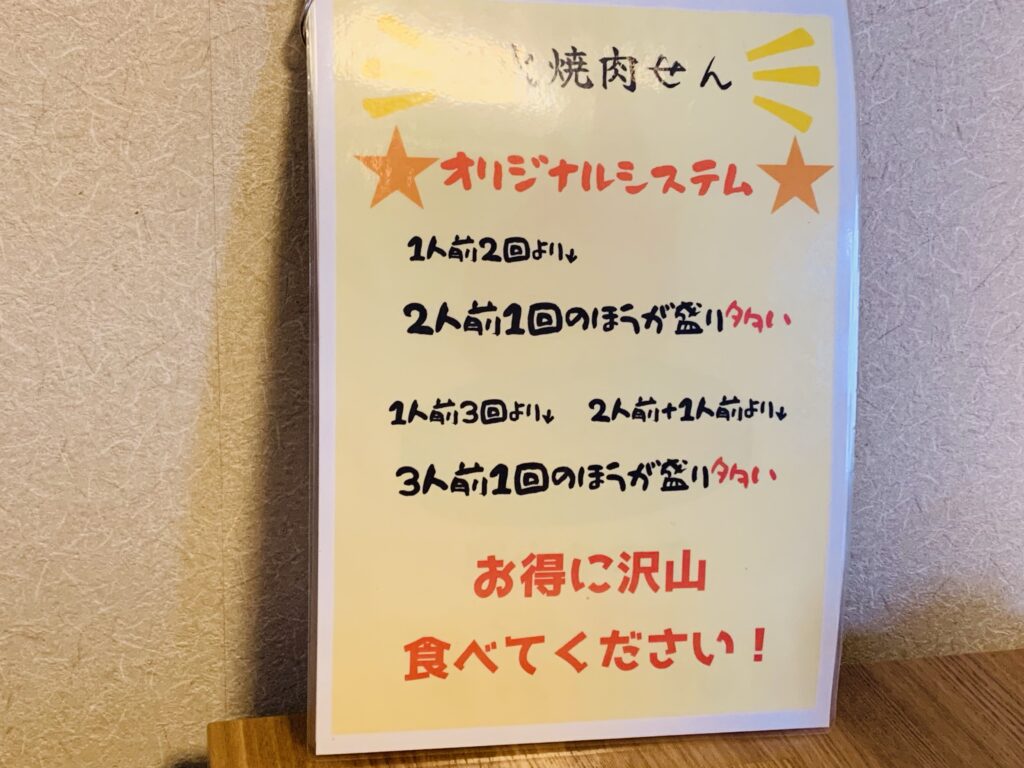 焼肉せん
★オリジナルシステム★
1人前2回より↓
2人前1回のほうが盛り多い
1人前3回より↓ 2人前+1人前より↓
3人前1回のほうが盛り多い
お得に沢山
食べてください!